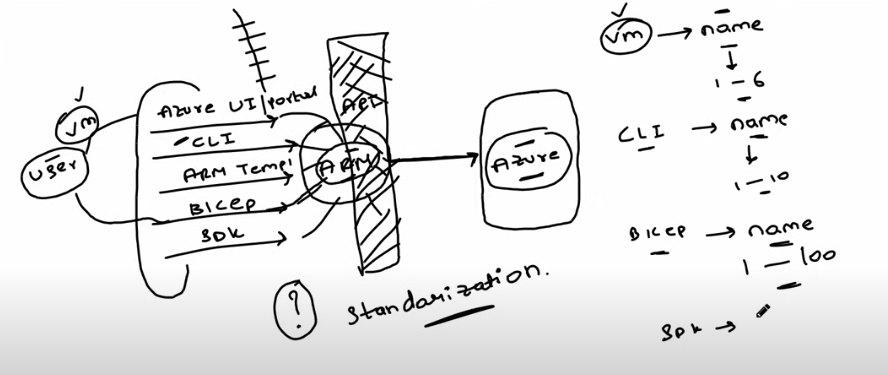 Azure UI/Portal
CLI
ARM Templ
BICEP
SDK
VM
User
API
ARM
Azure
?
Standarization.
VM → name
1 - 6
CLI → name
1 - 10
BICEP → name
1 - 100
SDK →